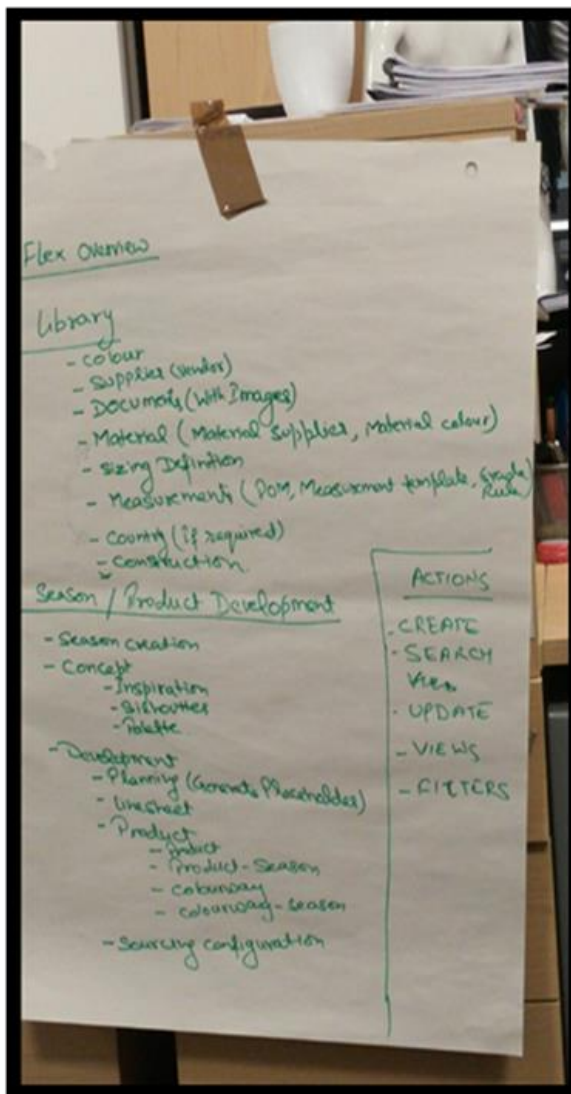 Flex Overview
Library
- Colour
- Supplier (Vendor)
- Documents (With Images)
- Material (Material Supplier, Material colour)
- Sizing Definition
- Measurements (POM, Measurement template, Grade Rule)
- Country (if required)
- Construction
Season / Product Development
- Season creation
- Concept
- Inspiration
- Silhouttes
- Palette
- Development
- Planning (Generate Placeholder)
- Linesheet
- Product
- Product
- Product-Season
- Colourway
- Colourway-Season
- Sourcing configuration
ACTIONS
- CREATE
- SEARCH
- UPDATE
- VIEWS
- FILTERS